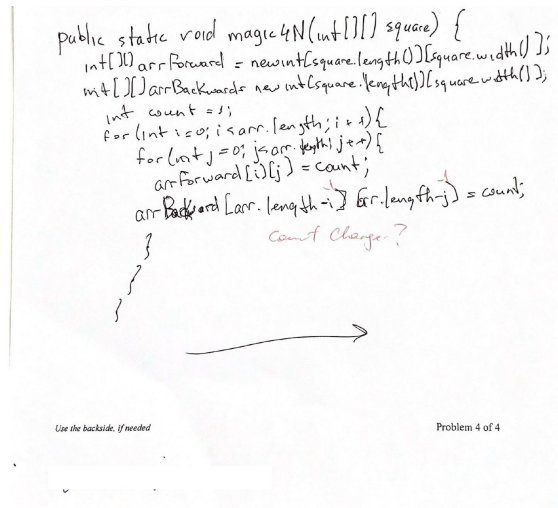 public static void magic4N(int[][] square) {
int[][] arrForward = new int[square.length()][square.width()];
int[][] arrBackwards new int[square.length()][square width()];
int count = 1;
for(int i=0; i<arr.length; i++){
for(int j=0; j<arr.length; j++){
arrForward[i][j] = count;
arrBackward[arr.length-i][arr.length-j) = count;
-1 -1
Count Change?
}
}
}
Use the backside, if needed
Problem 4 of 4